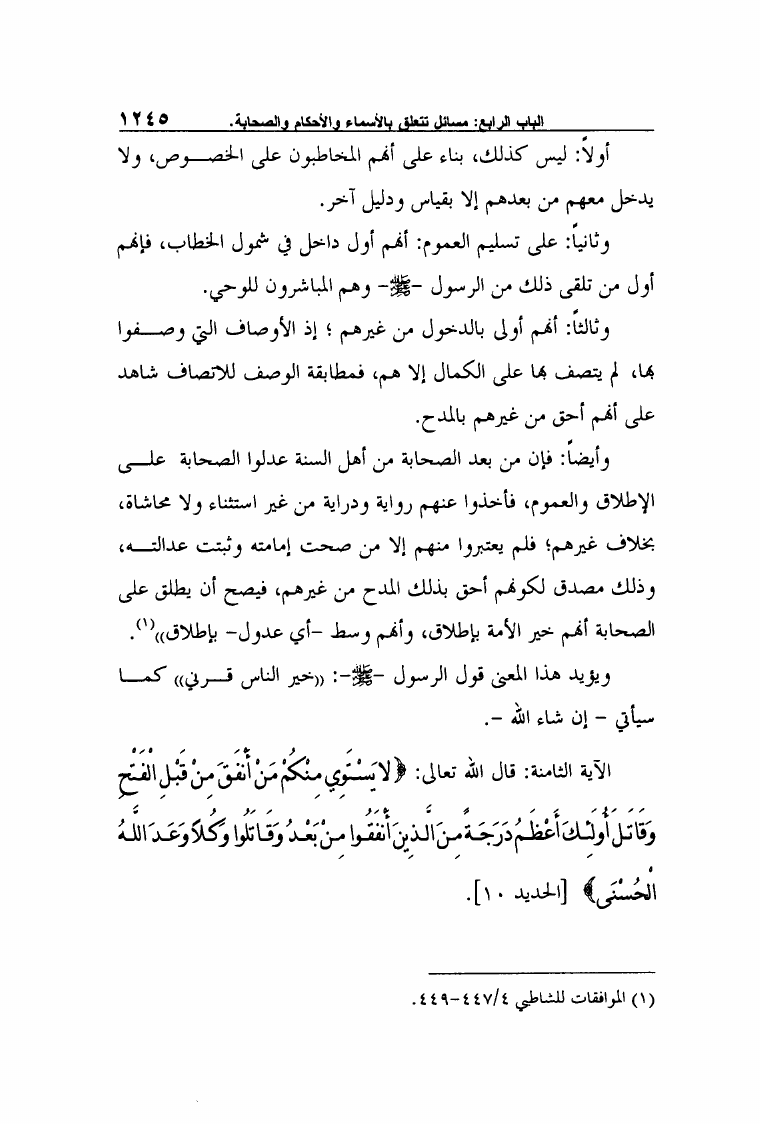 الباب الرابع: مسائل تتعلق بالأسماء والأحكام والصحابة. ١٢٤٥
أولاً: ليس كذلك، بناء على أنهم المخاطبون على الخصـــوص، ولا
يدخل معهم من بعدهم إلا بقياس ودليل آخر.
وثانياً: على تسليم العموم: أنهم أول داخل في شمول الخطاب، فإنهم
أول من تلقى ذلك من الرسول -ﷺ- وهم المباشرون للوحي.
وثالثاً: أنهم أولى بالدخول من غيرهم ؛ إذ الأوصاف التي وصـــفوا
بها، لم يتصف بها على الكمال إلا هم، فمطابقة الوصف للاتصاف شاهد
على أنهم أحق من غيرهم بالمدح.
وأيضاً: فإن من بعد الصحابة من أهل السنة عدلوا الصحابة علـــى
الإطلاق والعموم، فأخذوا عنهم رواية ودراية من غير استثناء ولا محاشاة،
بخلاف غيرهم؛ فلم يعتبروا منهم إلا من صحت إمامته وثبتت عدالتـــه،
وذلك مصدق لكونهم أحق بذلك المدح من غيرهم، فيصح أن يطلق على
الصحابة أنهم خير الأمة بإطلاق، وأنهم وسط -أي عدول- بإطلاق))(١).
ويؤيد هذا المعنى قول الرسول -ﷺ-: ((خير الناس قـــرني)) كمـــا
سيأتي - إن شاء الله -.
الآية الثامنة: قال الله تعالى: ﴿لَا يَسْتَوِي مِنْكُمْ مَنْ أَنْفَقَ مِنْ قَبْلِ الْفَتْحِ
وَقَاتَلَ أُولَئِكَ أَعْظَمُ دَرَجَةً مِنَ الَّذِينَ أَنْفَقُوا مِنْ بَعْدُ وَقَاتَلُوا وَكُلًّا وَعَدَ اللَّهُ
الْحُسْنَى﴾ [الحديد ١٠].
(١) الموافقات للشاطبي ٤/ ٤٤٧-٤٤٩.